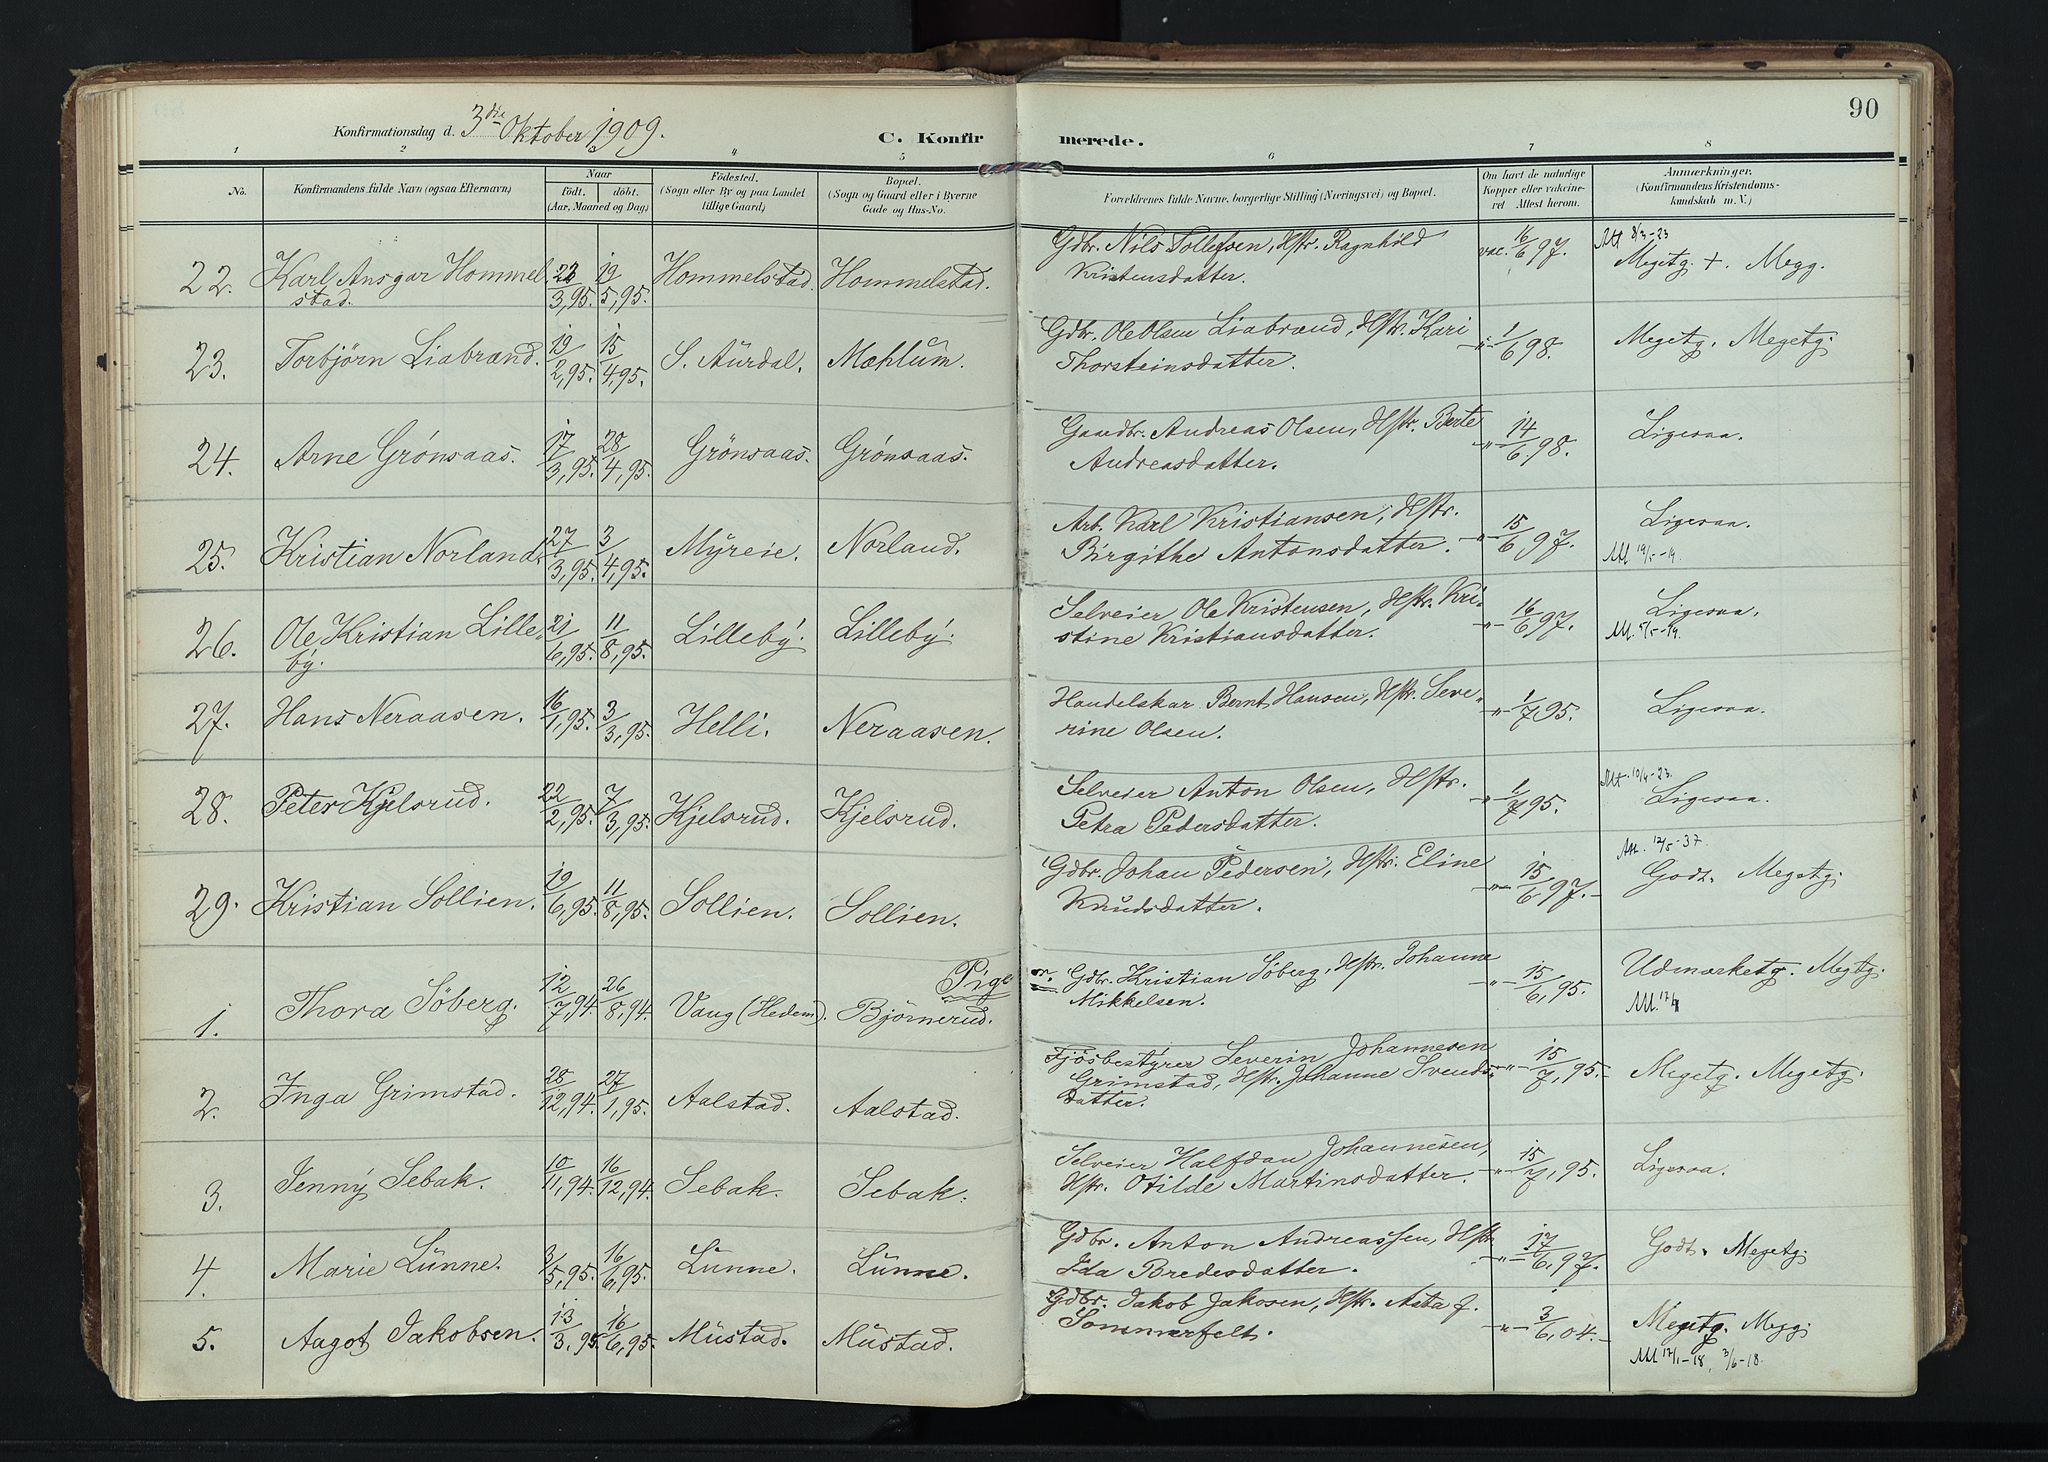 90
Konfirmationsdag d. 3die Oktober 1909.
C. Konfirmerede.
1 2 3 4 5 6 7 8
No. Konfirmandens fulde Navn (ogsaa Efternavn) Naar født. døbt. (Aar, Maaned og Dag) Fødested. (Sogn eller By og paa Landet tillige Gaard) Bopæl. (Sogn og Gaard eller i Byerne Gade og Hus-No. Forældrenes fulde Navne, borgerlige Stilling (Næringsvei) og Bopæl. Om havt de naturlige Kopper eller vaccineret Attest herom. Anmærkninger. (Konfirmandens Kristendomskundskab m. V.)
22. Karl Ansgar Hommelstad. 22/3,95. 19/5,95. Hommelstad. Hommelstad. Gdbr. Nils Tollefsen, Hstr. Ragnhild Kristensdatter. vac. 16/6 97. Att 8/3-23 Megetg. +. Megg.
23. Torbjörn Liabrænd. 19/2,95. 15/4,95. S. Aurdal. Mæhlum. Gdbr. Ole Olsen Liabrænd, Hstr. Kari Thorsteinsdatter. -"- 1/6 98. Megetg. Megetg.
24. Arne Grønsaas. 17/3,95. 28/4,95. Grönsaas. Grønsaas. Gaardbr. Andreas Olsen, Hstr. Berte Andreasdatter. -"- 14/6 98. Ligesaa.
25. Kristian Norland. 27/3,95. 3/4,95. Myreie. Norland. Arb. Karl Kristiansen, Hstr. Birgithe Antonsdatter. -"- 15/6 97. Ligesaa. Att 19/5-19.
26. Ole Kristian Lilleby. 21/6,95. 11/8,95. Lilleby. Lilleby. Selveier Ole Kristensen, Hstr. Kristine Kristiansdatter. -"- 16/6 97. Ligesaa. Att. 5/5-19.
27. Hans Neraasen. 16/1,95. 3/3,95. Helli. Neraasen. Handelskar Bernt Hansen, Hstr. Severine Olsen. -"- 1/7 95. Ligesaa.
28. Peter Kjelsrud. 22/2,95. 7/3,95. Kjelsrud. Kjelsrud. Selveier Anton Olsen, Hstr. Petra Pedersdatter. -"- 1/7 95. Att. 10/4-23. Ligesaa.
29. Kristian Sollien. 19/6,95. 11/8,95. Sollien. Sollien. Gdbr. Johan Pedersen, Hstr. Eline Knudsdatter. -"- 15/6 97. Att. 12/5-37. Godt. Megetg.
Piger.
1. Thora Söberg. 12/7,94. 26/8,94. Vang (Hedem). Björnerud. Gdbr. Kristian Søberg, Hstr. Johanne Mikkelsen. -"- 15/6, 95. Udmærketg. Megtg.
2. Inga Grimstad. 28/12,94. 27/1,95. Aalstad. Aalstad. Fjösbestyrer Severin Johannesen Grimstad, Hstr. Johanne Svendsdatter. -"- 15/7, 95. Megetg. Megetg.
3. Jenny Sebak. 10/11,94. 16/12,94. Sebak. Sebak. Selveier Halfdan Johannesen, Hstr. Otilde Martinsdatter. -"- 15/7, 95. Ligesaa.
4. Marie Lünne. 3/5,95. 16/6,95. Lunne. Lünne. Gdbr. Anton Andreassen, Hstr. Ida Bredesdatter. -"- 17/6,97. Godt. Megetg.
5. Aagot Jakobsen. 13/3,95. 16/6,95. Mustad. Müstad. Gdbr. Jakob Jakosen, Hstr. Asta f. Sommerfelt. -"- 3/6, 04. Megetg. Megg. Att 12/1-18, 3/6-18.